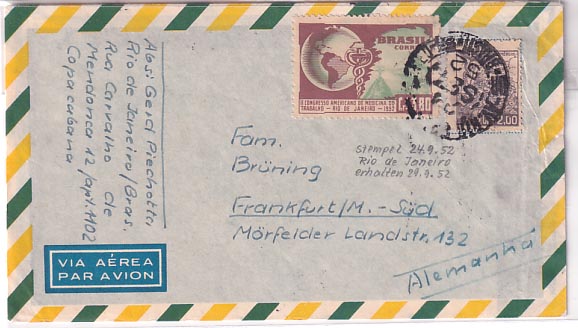 Abs: Gerd Piechotta
Rio de Janeiro/Bras.
Rua Carvalho de
Mendonca 12/apt. 1102
Copacabana
BRASIL
CORREIO
II CONGRESSO AMERICANO DE MEDICINA DO
TRABALHO - RIO DE JANEIRO - 1952
Cr$ 3,80
2,00
Fam.
Brüning
Frankfurt/M.-Süd
Mörfelder Landstr. 132
Alemanha
Stempel 24.9.52
Rio de Janeiro
erhalten 29.9.52
VIA AÉREA
PAR AVION